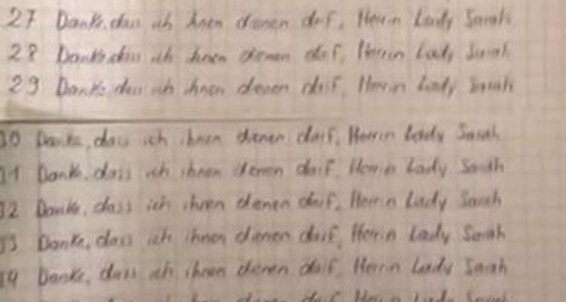 27 Danke, dass ich ihnen dienen darf, Herrin Lady Sarah
28 Danke, dass ich ihnen dienen darf, Herrin Lady Sarah
29 Danke, dass ich ihnen dienen darf, Herrin Lady Sarah
30 Danke, dass ich ihnen dienen darf, Herrin Lady Sarah
31 Danke, dass ich ihnen dienen darf, Herrin Lady Sarah
32 Danke, dass ich ihnen dienen darf, Herrin Lady Sarah
33 Danke, dass ich ihnen dienen darf, Herrin Lady Sarah
34 Danke, dass ich ihnen dienen darf, Herrin Lady Sarah